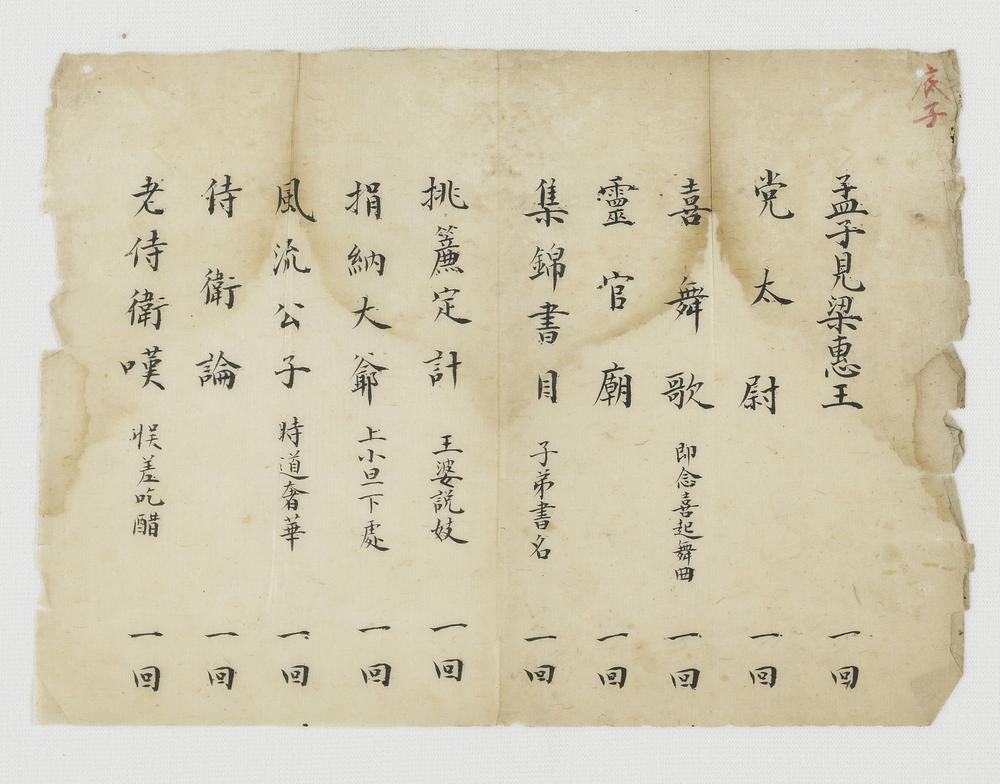 底子
孟子見梁惠王 一回
党太尉 一回
喜舞歌 即念喜起舞曲 一回
靈官廟 一回
集錦書目 子弟書名 一回
挑簾定計 王婆説妓 一回
捐納大爺 上小旦下處 一回
風流公子 時道奢華 一回
侍衛論 一回
老侍衛嘆 悮差吃醋 一回